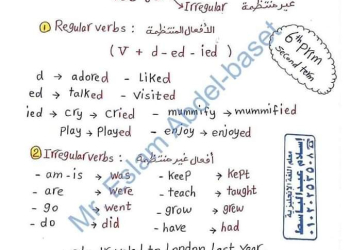 غير منتظمة
Irregular
① Regular verbs : الأفعال المنتظمة
( V + d - ed - ied )
6th prim
second term
d → adored - Liked
ed → talked - Visited
ied → cry → cried - mummify → mummified
Play → Played - enjoy → enjoyed
② Irregular verbs : أفعال غير منتظمة
- am - is → was - keep → kept
- are → were - teach → taught
- go → went - grow → grew
- do → did - have → had
to London last year
Mr. Eslam Abdel-baset
إسلام عبد الباسط
معلم اللغة الإنجليزية